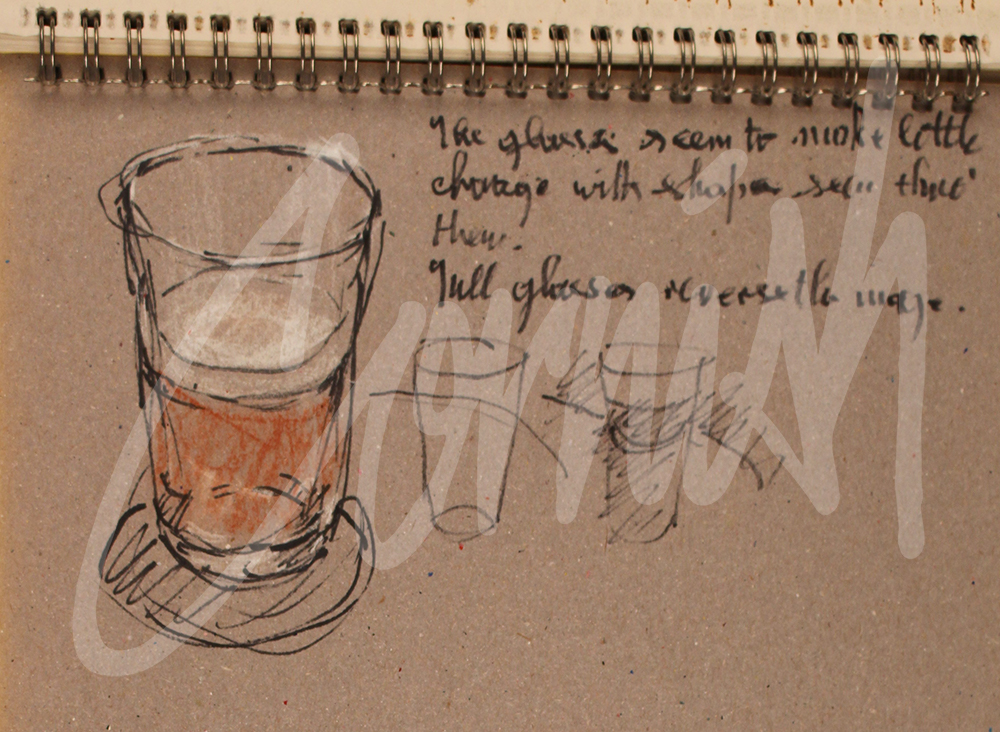 The glasses seem to make little
change with shapes seen thro'
them.
Full glasses reverse the image.
Cornish